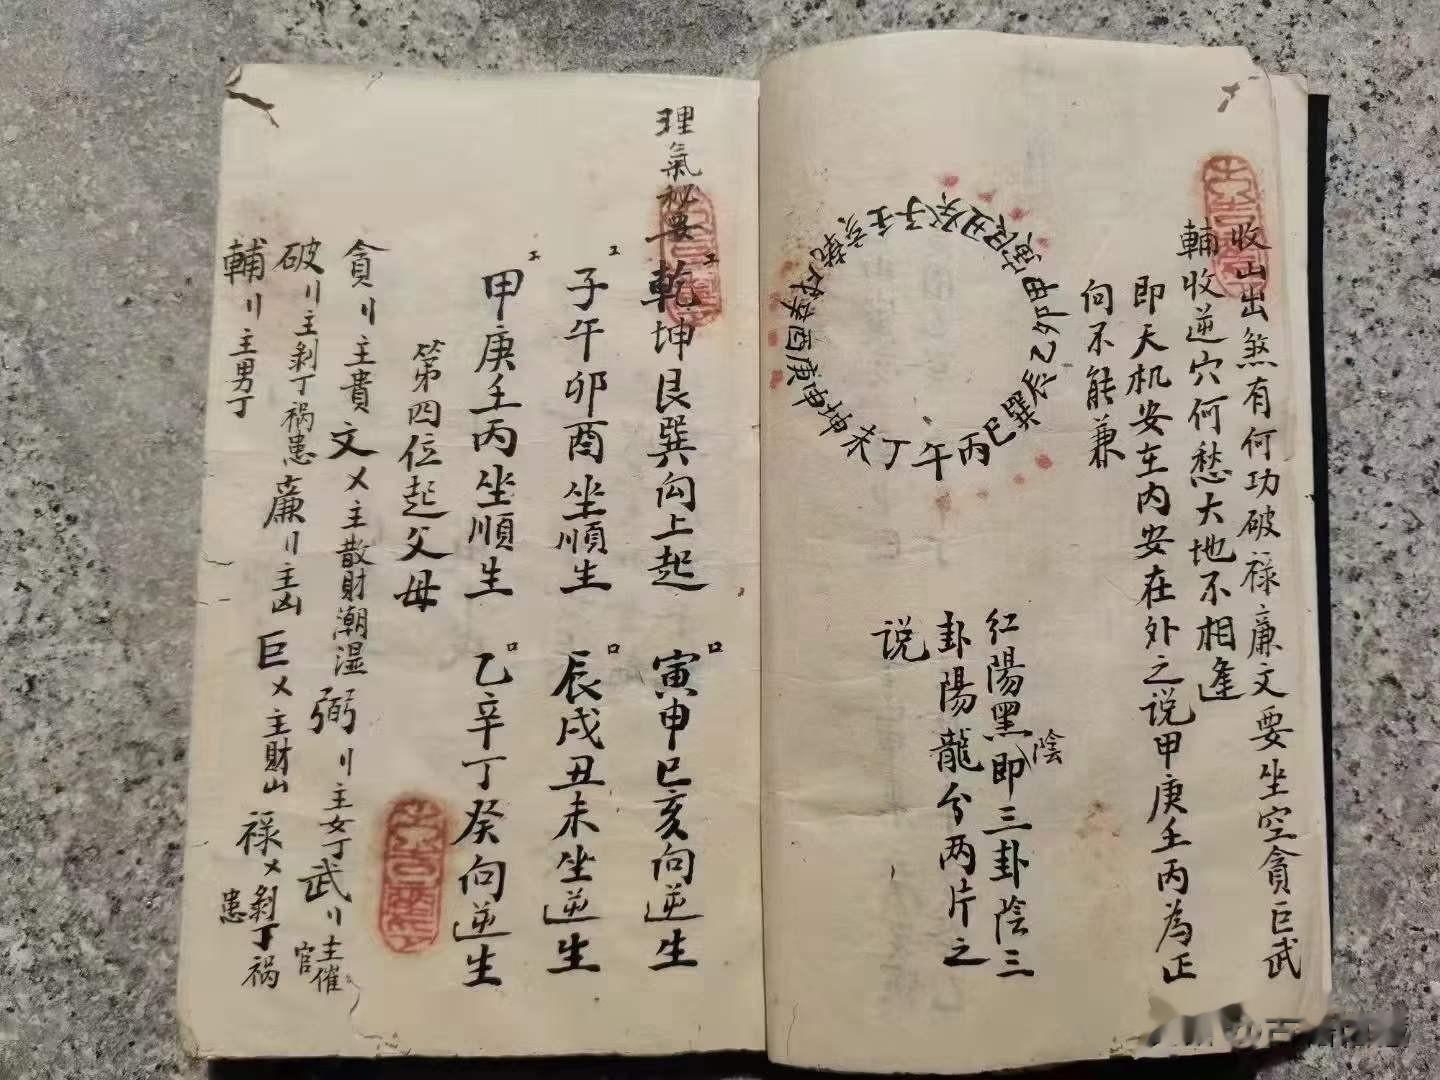 收山出煞有何功破禄廉文要坐空貪巨武
輔收逆穴何愁大地不相逢
即天机安在内安在外之说甲庚壬丙為正
向不能兼
壬子癸丑艮寅甲卯乙辰巽巳丙午丁未坤申庚酉辛戌乾亥
红陽黑陰即三卦陰三
卦陽龍分兩片之
说
理氣秘要
乾坤艮巽向上起 寅申巳亥向逆生
子午卯酉坐順生 辰戌丑未坐逆生
甲庚壬丙坐順生 乙辛丁癸向逆生
第四位起父母
貪〢主貴 文〤主散財潮湿 弼〢主女丁 武〢主催官
破〢主剝丁祸患 廉〢主凶 巨〤主財山 禄〤剝丁祸患
輔〢主男丁